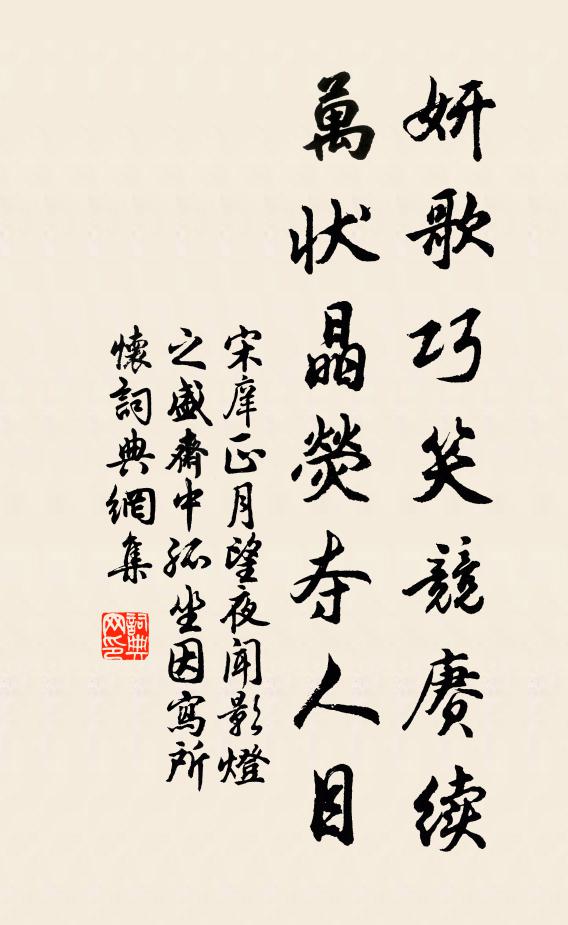 妍歌巧笑競賡续
萬状晶熒夺人目
宋庠正月望夜闻影燈
之盛齋中孤坐因寫所
懷詞典網集
詞典
网印